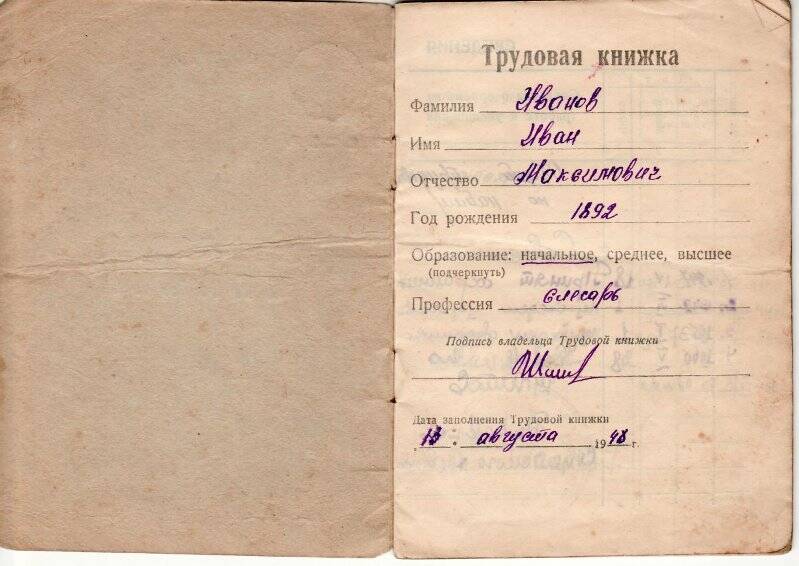 Трудовая книжка
Фамилия Иванов
Имя Иван
Отчество Максимович
Год рождения 1892
Образование: начальное, среднее, высшее
(подчеркнуть)
Профессия слесарь
Подпись владельца Трудовой книжки
Дата заполнения Трудовой книжки
августа 1948 г.